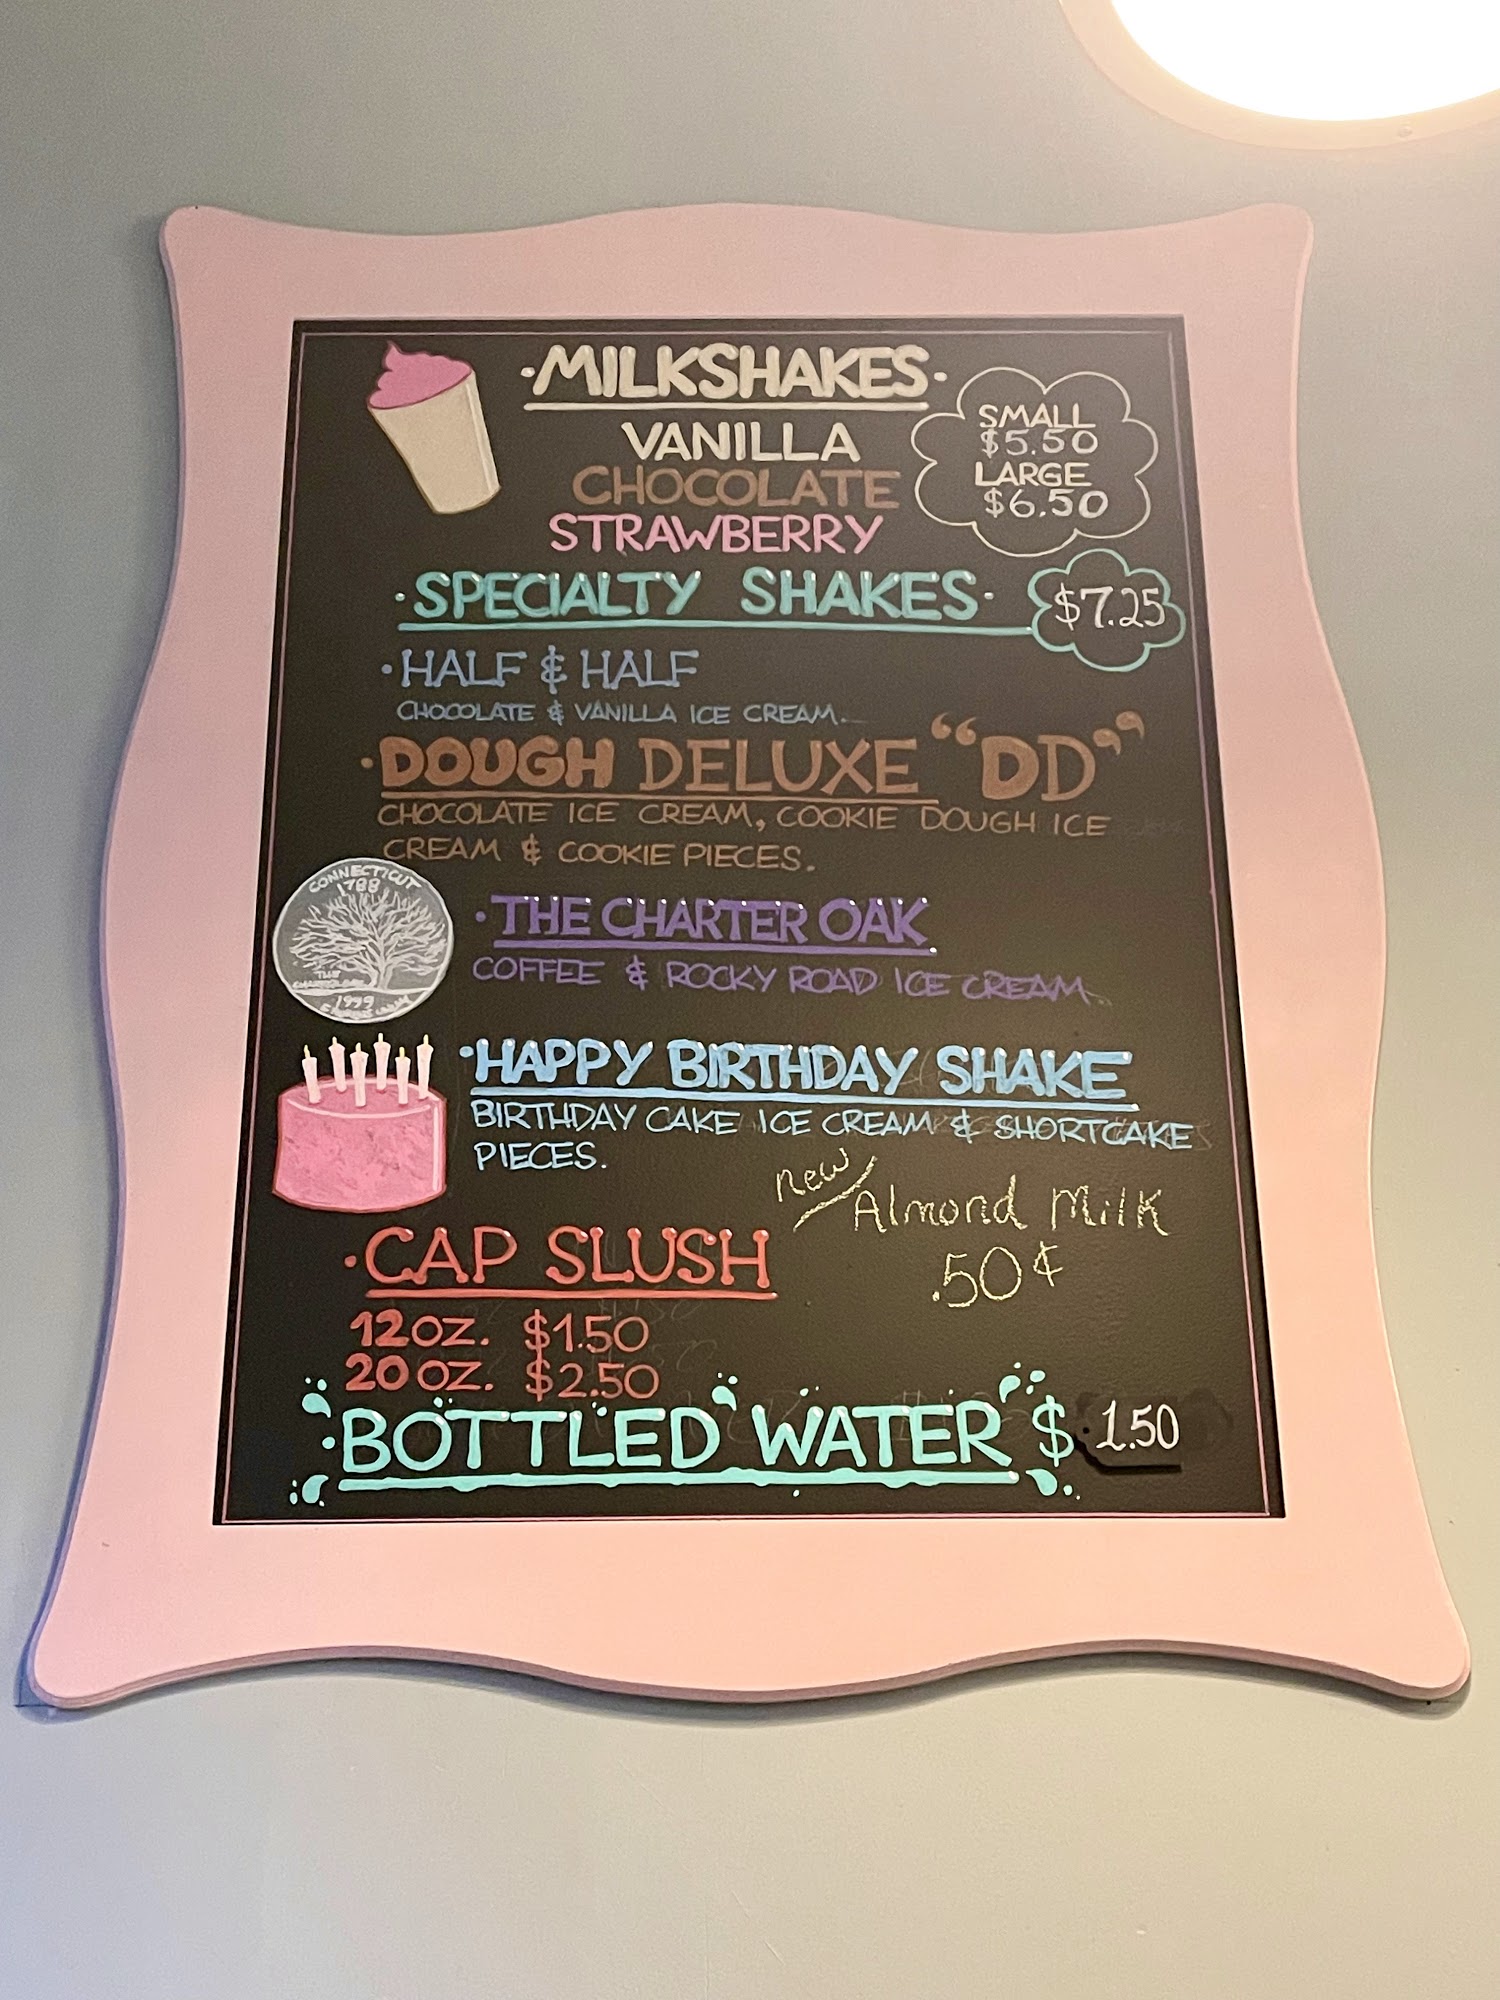 ·MILKSHAKES·
VANILLA
CHOCOLATE
STRAWBERRY
SMALL
$5.50
LARGE
$6.50
·SPECIALTY SHAKES·
$7.25
·HALF & HALF
CHOCOLATE & VANILLA ICE CREAM.
·DOUGH DELUXE "DD"
CHOCOLATE ICE CREAM, COOKIE DOUGH ICE
CREAM & COOKIE PIECES.
CONNECTICUT
1788
THE
CHARTER OAK
1999
·THE CHARTER OAK
COFFEE & ROCKY ROAD ICE CREAM.
·HAPPY BIRTHDAY SHAKE
BIRTHDAY CAKE ICE CREAM & SHORTCAKE
PIECES.
new
Almond Milk
.50¢
·CAP SLUSH
12 OZ. $1.50
20 OZ. $2.50
·BOTTLED WATER $ 1.50